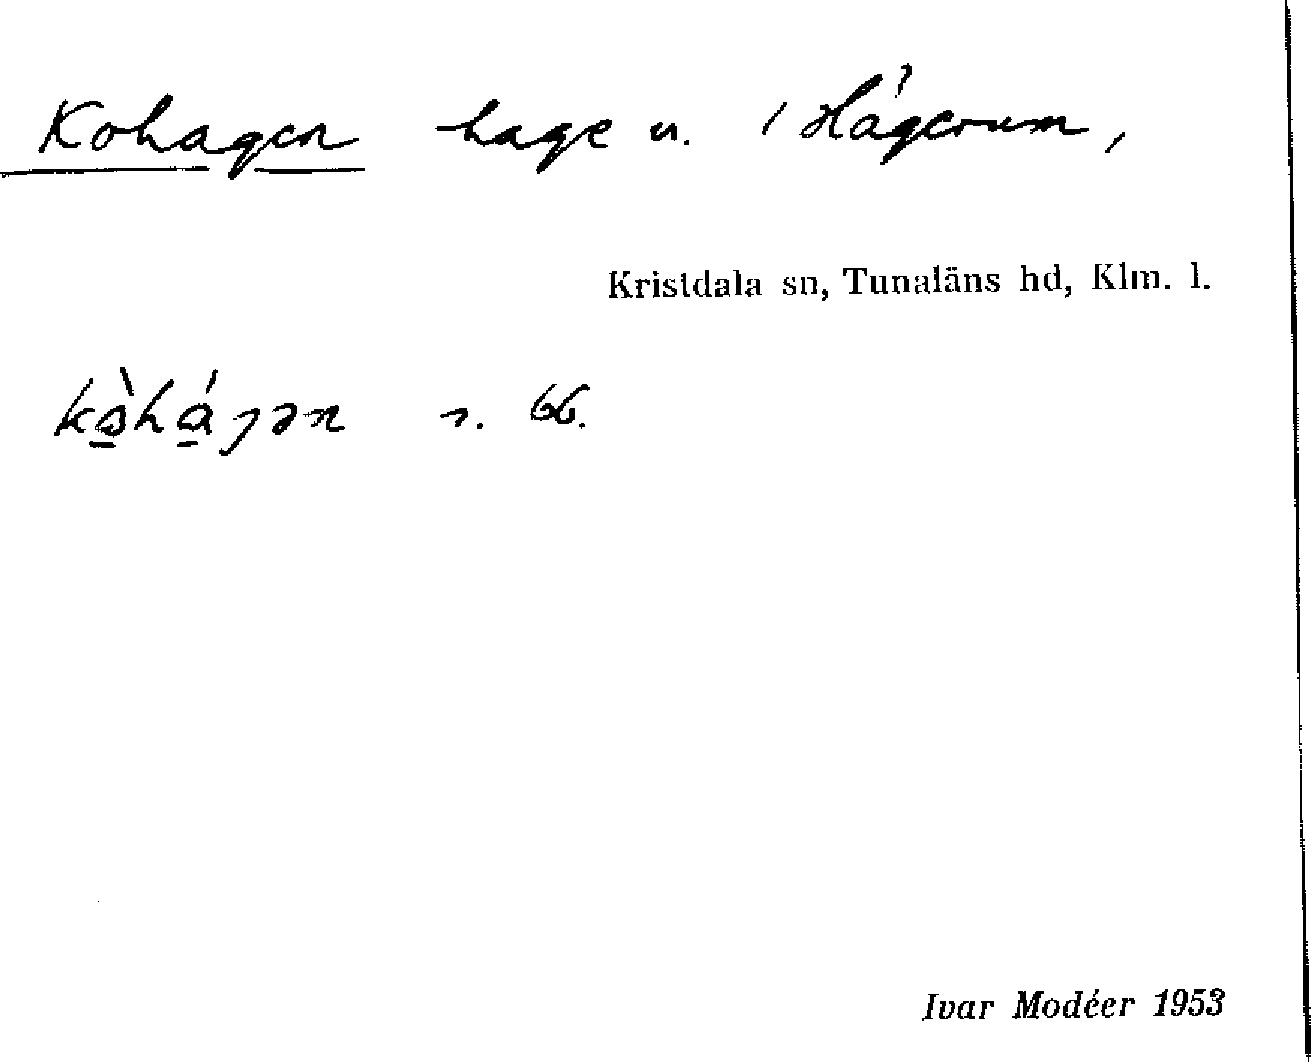 Kohagen hage n. i Hägerum,
Kristdala sn, Tunaläns hd, Klm. l.
Ivar Modéer 1953